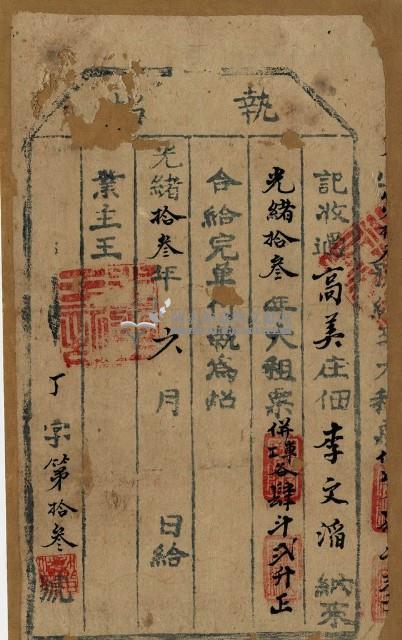 執
記收過高美庄佃李文滔納來
光緒拾叁年大租粟併單工谷肆斗弍升正
合給完單付執為炤
光緒拾叁年六月 日給
業主王
丁字第拾叁號